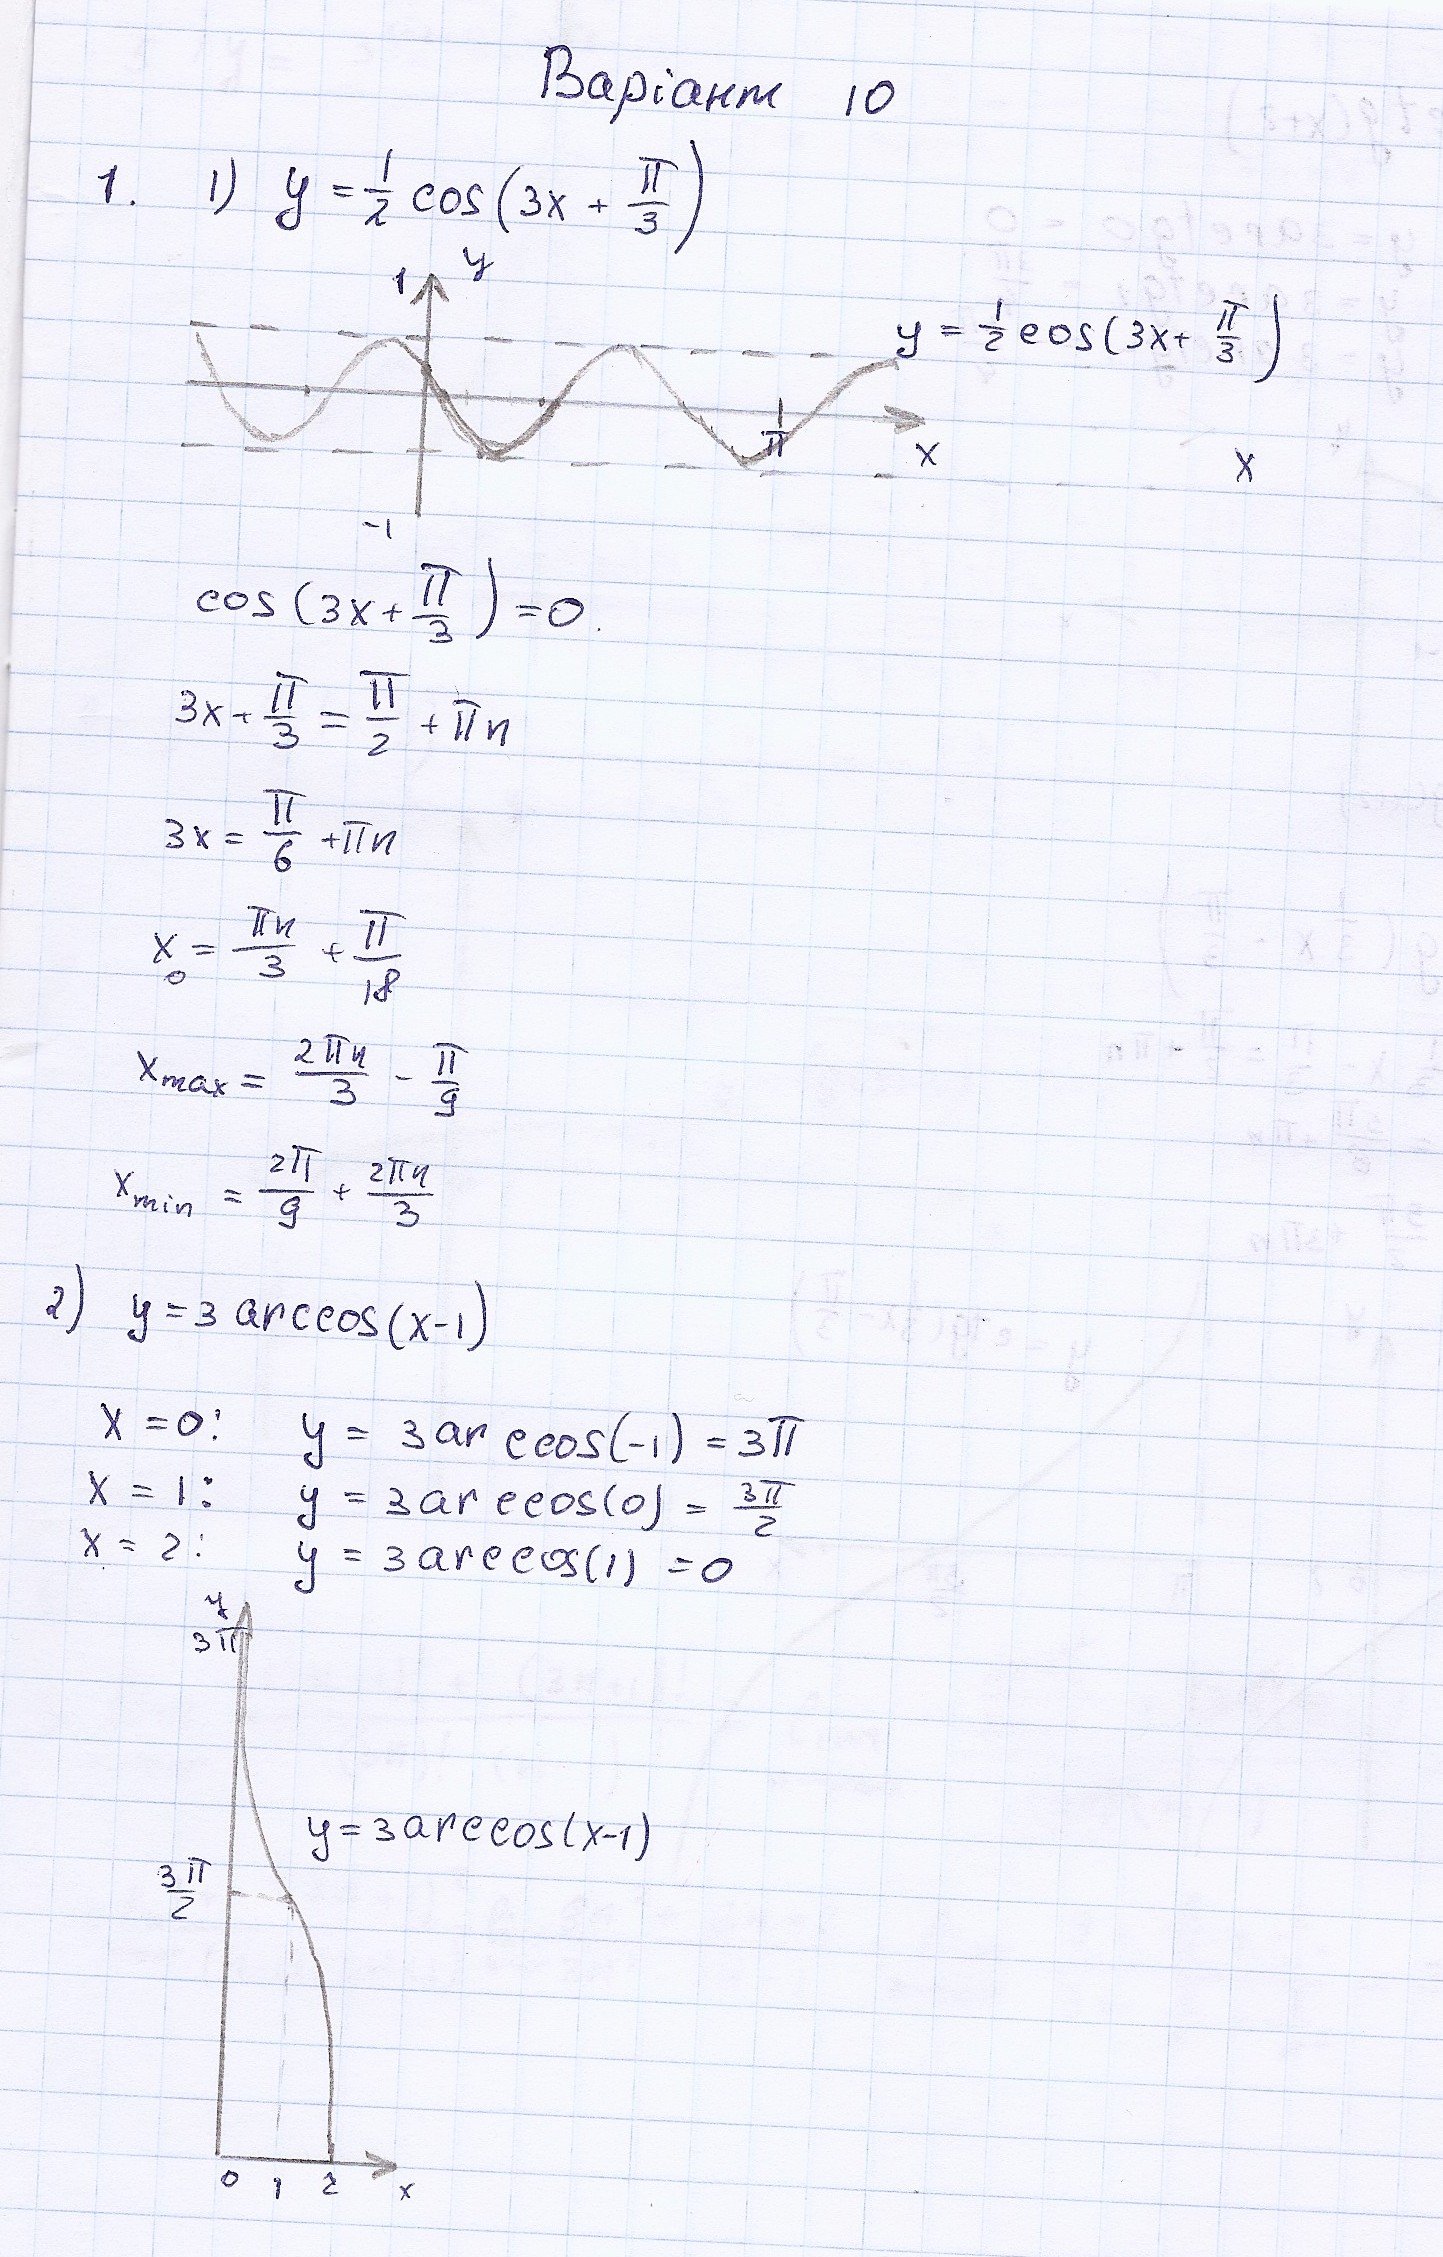 Варіант 10
1. 1) y = 1/2 cos(3x + π/3)
y
1
y = 1/2 cos(3x + π/3)
π
x
x
-1
cos(3x + π/3) = 0.
3x + π/3 = π/2 + πn
3x = π/6 + πn
x₀ = πn/3 + π/18
xmax = 2πn/3 - π/9
xmin = 2π/9 + 2πn/3
2) y = 3 arccos(x-1)
x = 0: y = 3arccos(-1) = 3π
x = 1: y = 3arccos(0) = 3π/2
x = 2: y = 3arccos(1) = 0
y
3π
y = 3arccos(x-1)
3π/2
0 1 2 x